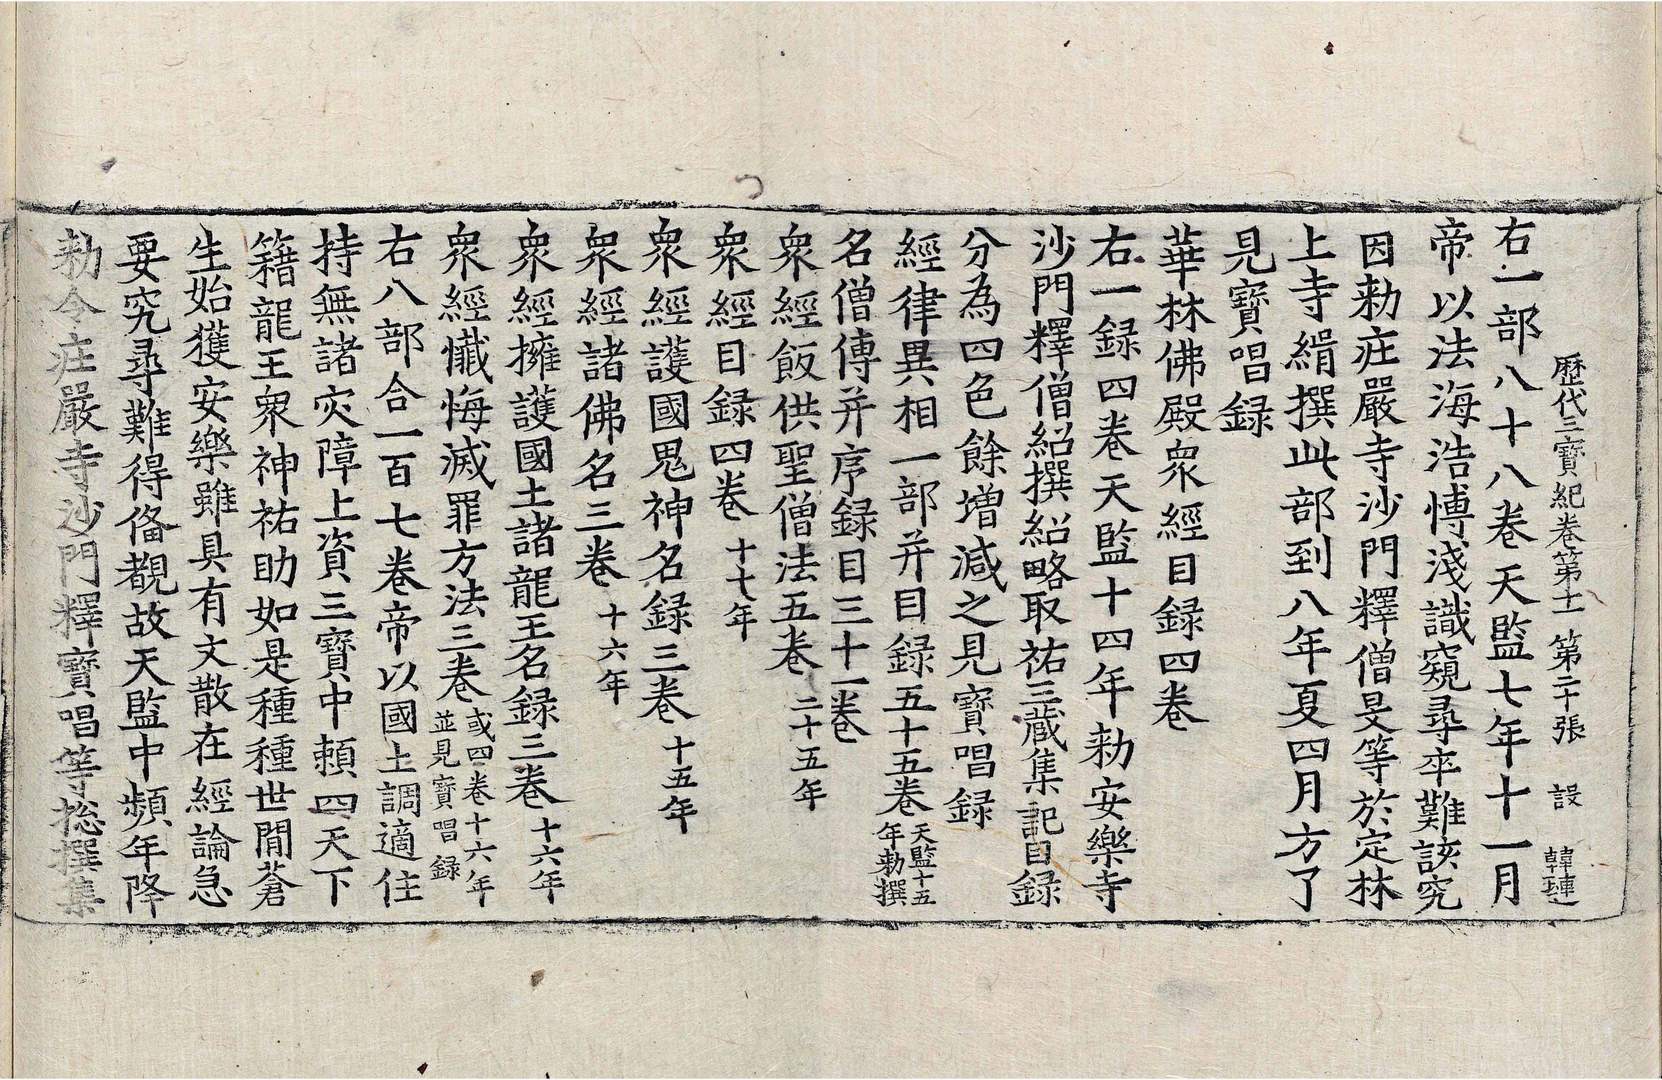 歷代三寶紀卷第十一 第二十張 設 韓璉
右一部八十八卷天監七年十一月
帝以法海浩博淺識窺尋卒難該究
因勑莊嚴寺沙門釋僧旻等於定林
上寺緝撰此部到八年夏四月方了
見寶唱録
華林佛殿衆經目録四卷
右一録四卷天監十四年勑安樂寺
沙門釋僧紹撰紹略取祐三藏集記目録
分為四色餘增減之見寶唱録
經律異相一部并目録五十五卷天監十五
年勑撰
名僧傳并序録目三十一卷
衆經飯供聖僧法五卷二十五年
衆經目録四卷十七年
衆經護國鬼神名録三卷十五年
衆經諸佛名三卷十六年
衆經擁護國土諸龍王名録三卷十六年
衆經懺悔滅罪方法三卷或四卷十六年
並見寶唱録
右八部合一百七卷帝以國土調適住
持無諸灾障上資三寶中賴四天下
籍龍王衆神祐助如是種種世間蒼
生始獲安樂雖具有文散在經論急
要究尋難得俻覩故天監中頻年降
勑令莊嚴寺沙門釋寶唱等捴撰集